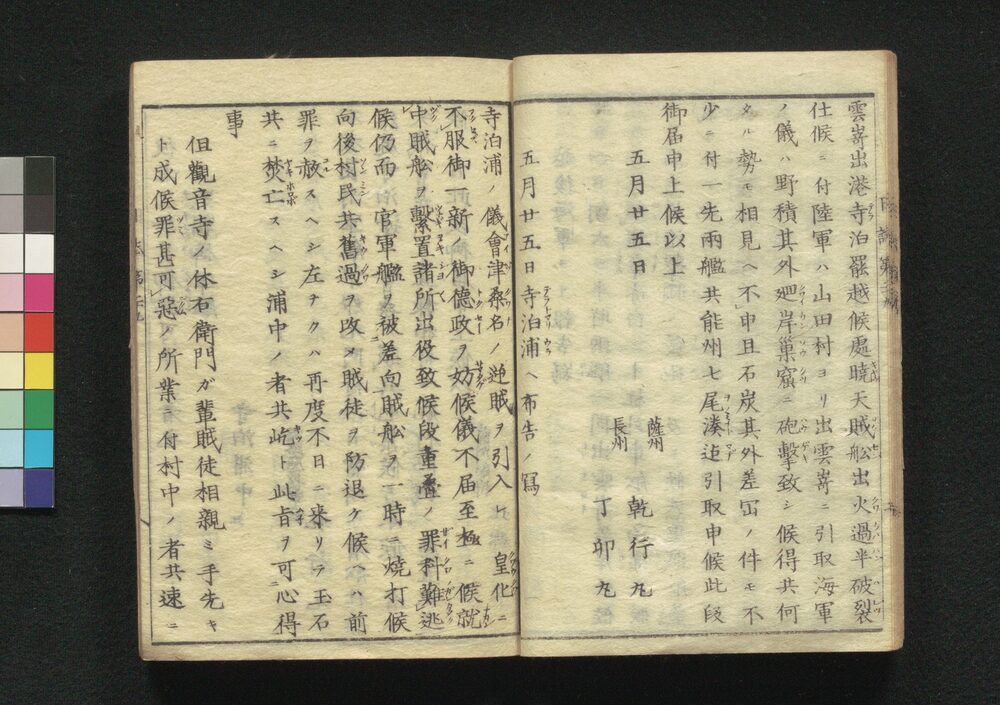 雲嵜出港寺泊罷越候處曉天賊舩出火過半破裂
仕候ニ付陸軍ハ山田村ヨリ出雲嵜ニ引取海軍
ノ儀ハ野積其外廻岸巢窟ニ砲擊致シ候得共何
タル勢モ相見ヘ不申且石炭其外差當ノ件モ不
少ニ付一先兩艦共能州七尾湊迄引取申候此段
御届申上候以上
五月廿五日
薩州 乾行丸
長州 丁卯丸
五月廿五日寺泊浦ヘ布告ノ寫
寺泊浦ノ儀會津桑名ノ逆賊ヲ引入 皇化ニ
不服御一新ノ御德政ヲ妨候儀不届至極ニ候就
中賊舩ヲ繫置諸所出役致候段重疊ノ罪科難逃
候仍而 官軍艦ヲ被差向賊舩ヲ一時ニ燒打候
向後村民共舊過ヲ改メ賊徒ヲ防退ケ候ヘハ前
罪ヲ赦スヘシ左ナクハ再度不日ニ來リテ玉石
共ニ焚亡スヘシ浦中ノ者共屹ト此旨ヲ可心得
事
但觀音寺ノ休右衛門ガ輩賊徒相親ミ手先キ
ト成候罪甚可惡ノ所業ニ付村中ノ者共速ニ